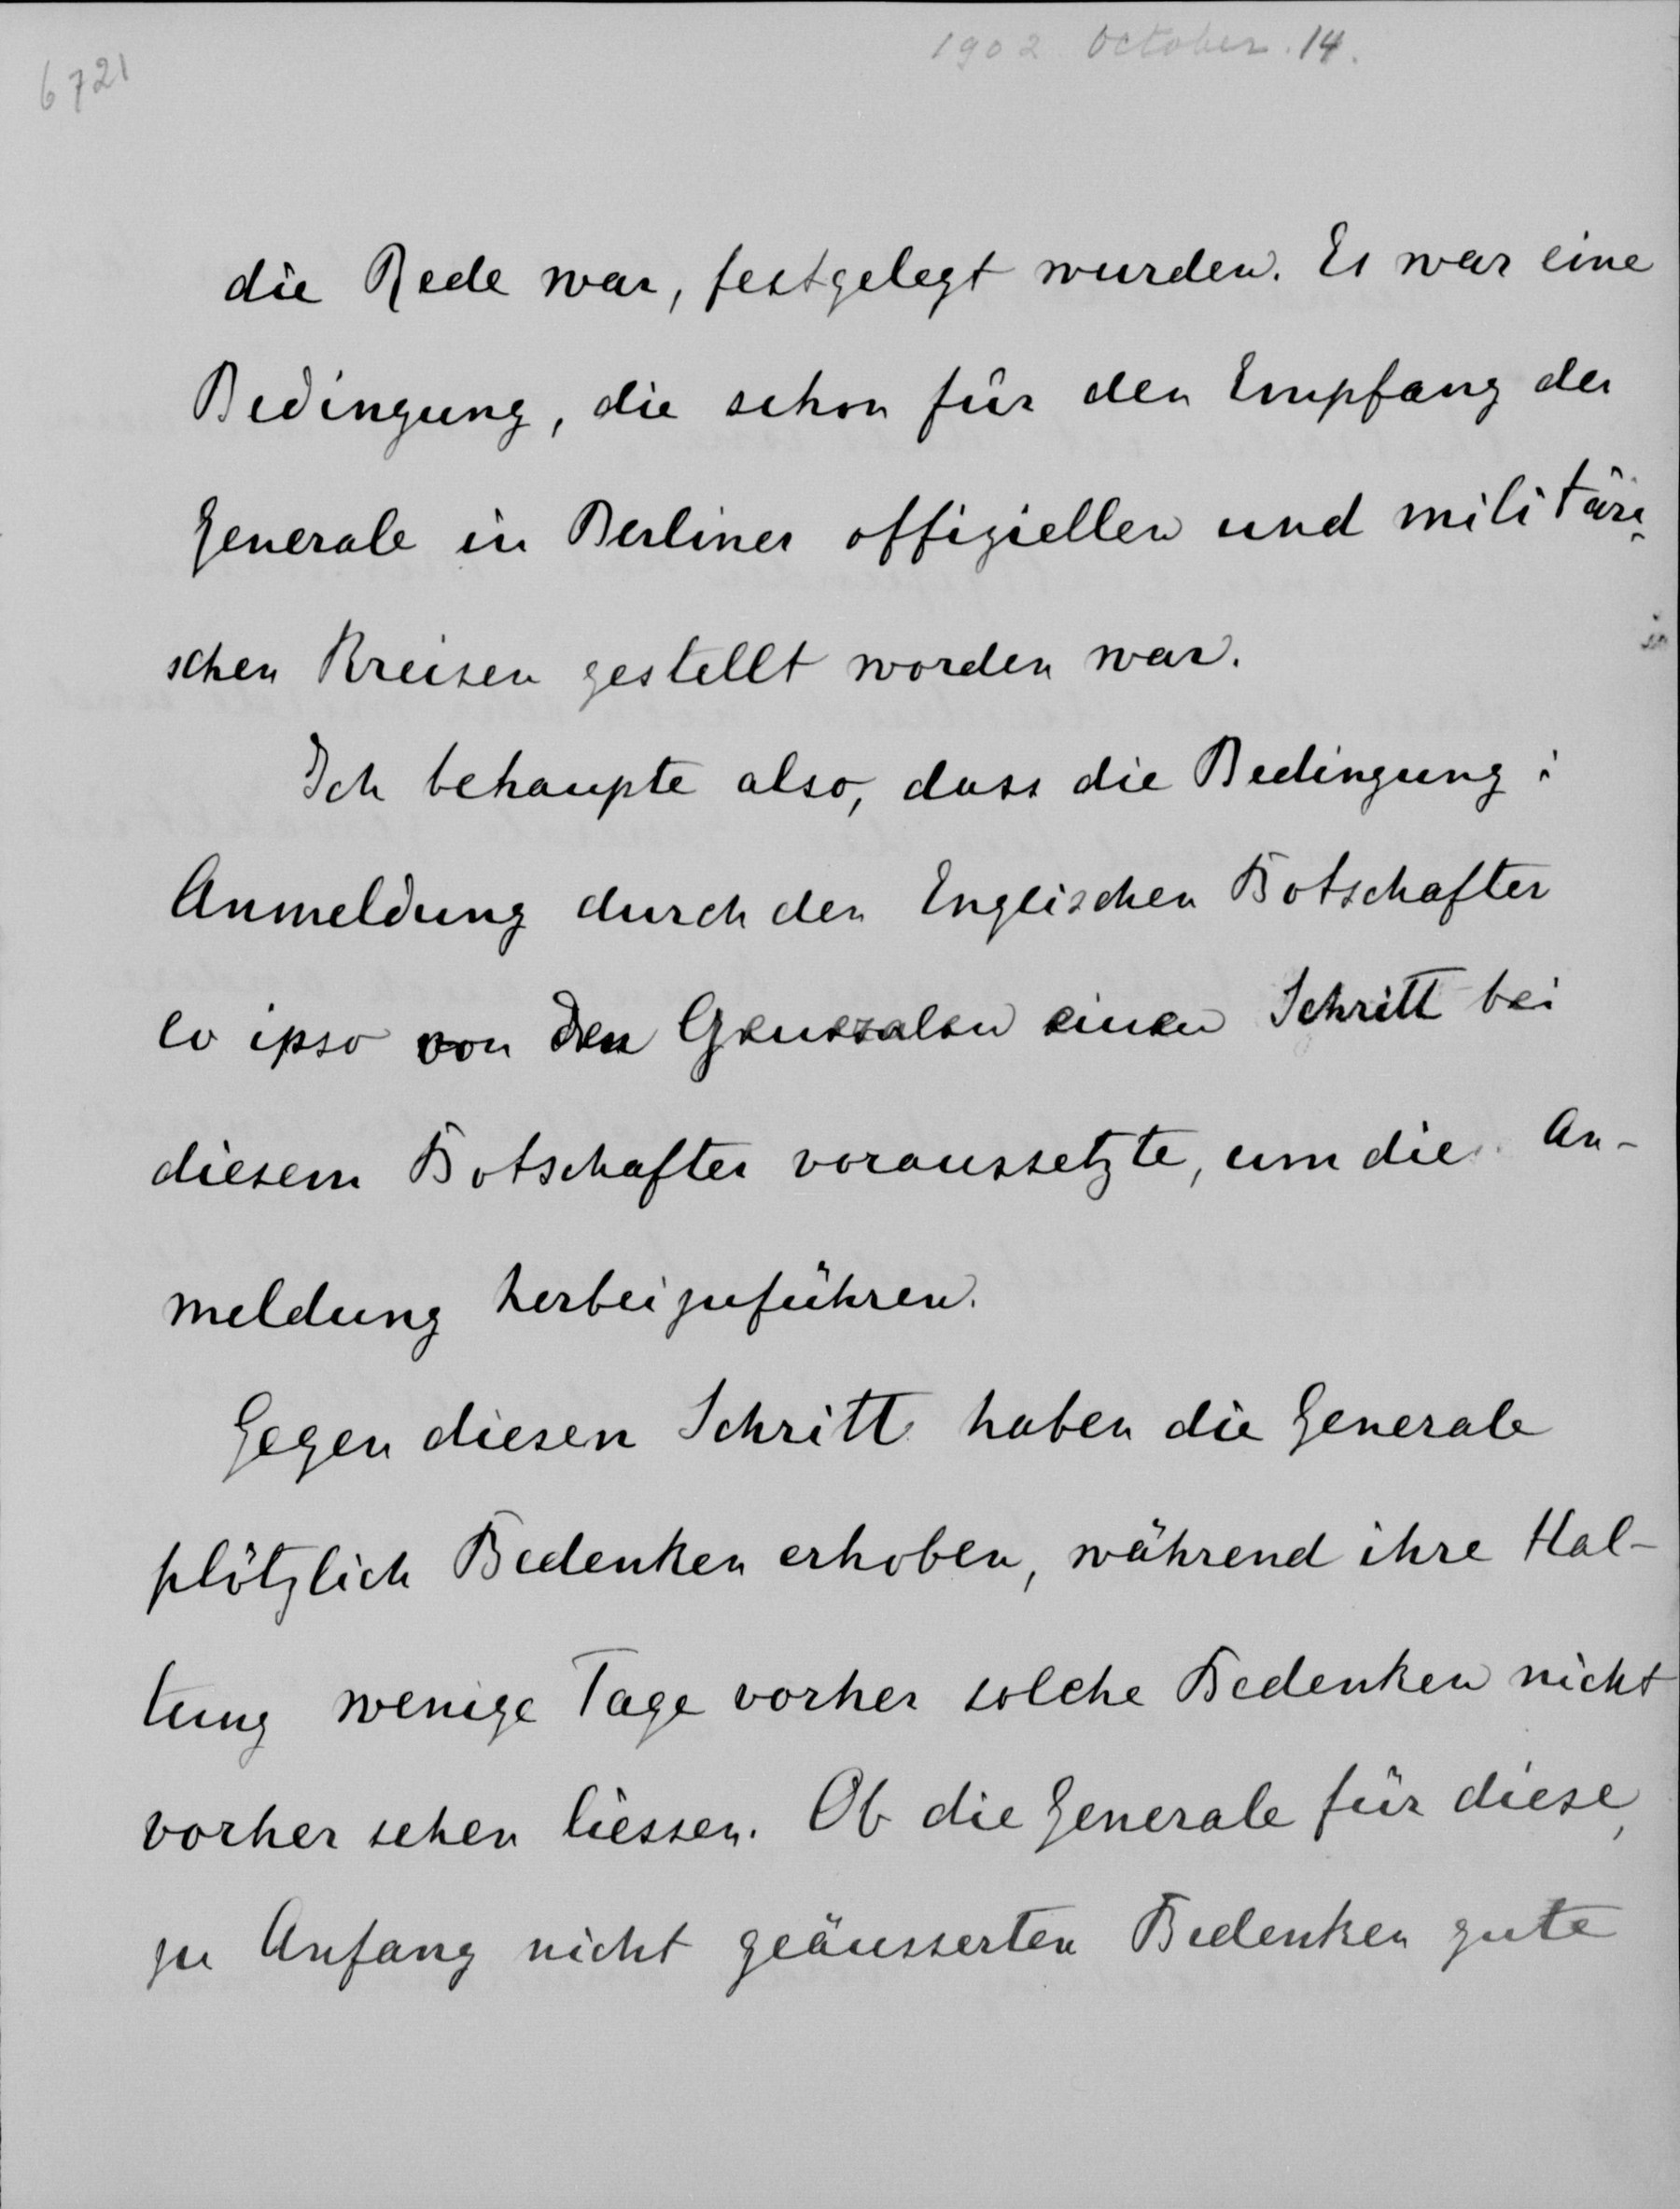 1902 October. 14.
6721
die Rede war, festgelegt wurden. Es war eine
Bedingung, die schon für den Empfang der
Generale in Berliner offiziellen und militäri-
schen Kreisen gestellt worden war.
Ich behaupte also, dass die Bedingung:
Anmeldung durch den Englischen Botschafter
eo ipso von den Generalen einen Schritt bei
diesem Botschafter voraussetzte, um die An-
meldung herbeizuführen.
Gegen diesen Schritt haben die Generale
plötzlich Bedenken erhoben, während ihre Hal-
tung wenige Tage vorher solche Bedenken nicht
vorher sehen liessen. Ob die Generale für diese,
zu Anfang nicht geäusserten Bedenken gute